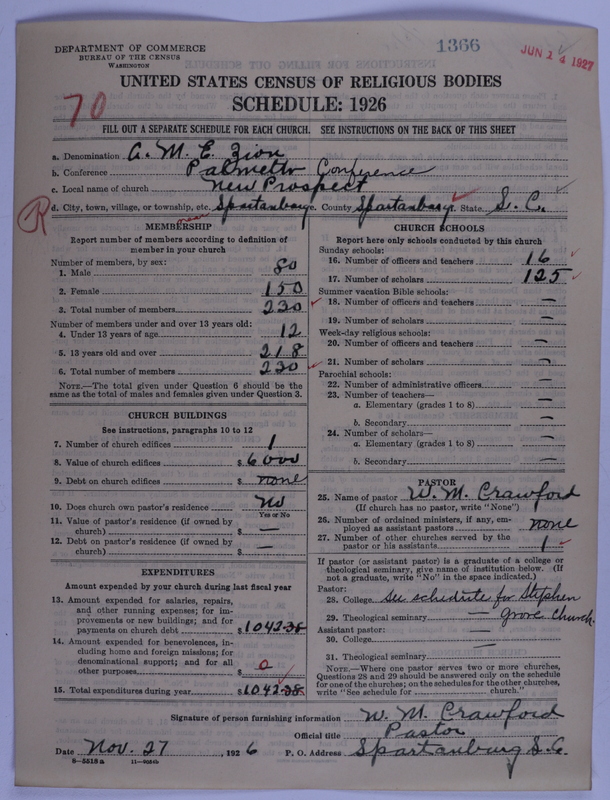 DEPARTMENT OF COMMERCE
BUREAU OF THE CENSUS
WASHINGTON
1366
JUN 14 1927
UNITED STATES CENSUS OF RELIGIOUS BODIES
SCHEDULE: 1926
70
FILL OUT A SEPARATE SCHEDULE FOR EACH CHURCH. SEE INSTRUCTIONS ON THE BACK OF THIS SHEET
a. Denomination A. M. E. Zion
b. Conference Palmetto Conference
c. Local name of church New Prospect
R d. City, town, village, or township, etc. near Spartanburg e. County Spartanburg f. State S. C.
MEMBERSHIP
Report number of members according to definition of
member in your church
Number of members, by sex:
1. Male 80
2. Female 150
3. Total number of members 230
Number of members under and over 13 years old:
4. Under 13 years of age 12
5. 13 years old and over 218
6. Total number of members 230
NOTE.—The total given under Question 6 should be the
same as the total of males and females given under Question 3.
CHURCH BUILDINGS
See instructions, paragraphs 10 to 12
7. Number of church edifices 1
8. Value of church edifices $ 6000
9. Debt on church edifices $ none
10. Does church own pastor's residence No
Yes or No
11. Value of pastor's residence (if owned by
church) $ —
12. Debt on pastor's residence (if owned by
church) $ —
EXPENDITURES
Amount expended by your church during last fiscal year
13. Amount expended for salaries, repairs,
and other running expenses; for im-
provements or new buildings; and for
payments on church debt $ 1042.38
14. Amount expended for benevolences, in-
cluding home and foreign missions; for
denominational support; and for all
other purposes $ 0
15. Total expenditures during year $ 1042.38
CHURCH SCHOOLS
Report here only schools conducted by this church
Sunday schools:
16. Number of officers and teachers 16
17. Number of scholars 125
Summer vacation Bible schools:
18. Number of officers and teachers —
19. Number of scholars —
Week-day religious schools:
20. Number of officers and teachers —
21. Number of scholars —
Parochial schools:
22. Number of administrative officers —
23. Number of teachers—
a. Elementary (grades 1 to 8) —
b. Secondary —
24. Number of scholars—
a. Elementary (grades 1 to 8) —
b. Secondary —
PASTOR
25. Name of pastor W. M. Crawford
(If church has no pastor, write "None")
26. Number of ordained ministers, if any, em-
ployed as assistant pastors none
27. Number of other churches served by the
pastor or his assistants 1
If pastor (or assistant pastor) is a graduate of a college or
theological seminary, give name of institution below. (If
not a graduate, write "No" in the space indicated.)
Pastor:
28. College See schedule for Stephen
29. Theological seminary — Grove Church
Assistant pastor:
30. College —
31. Theological seminary
NOTE.—Where one pastor serves two or more churches,
Questions 28 and 29 should be answered only on the schedule
for one of the churches; on the schedules for the other churches,
write "See schedule for church."
Signature of person furnishing information W. M. Crawford
Official title Pastor
Date Nov. 27, 1926 P. O. Address Spartanburg S. C.
8-5518a